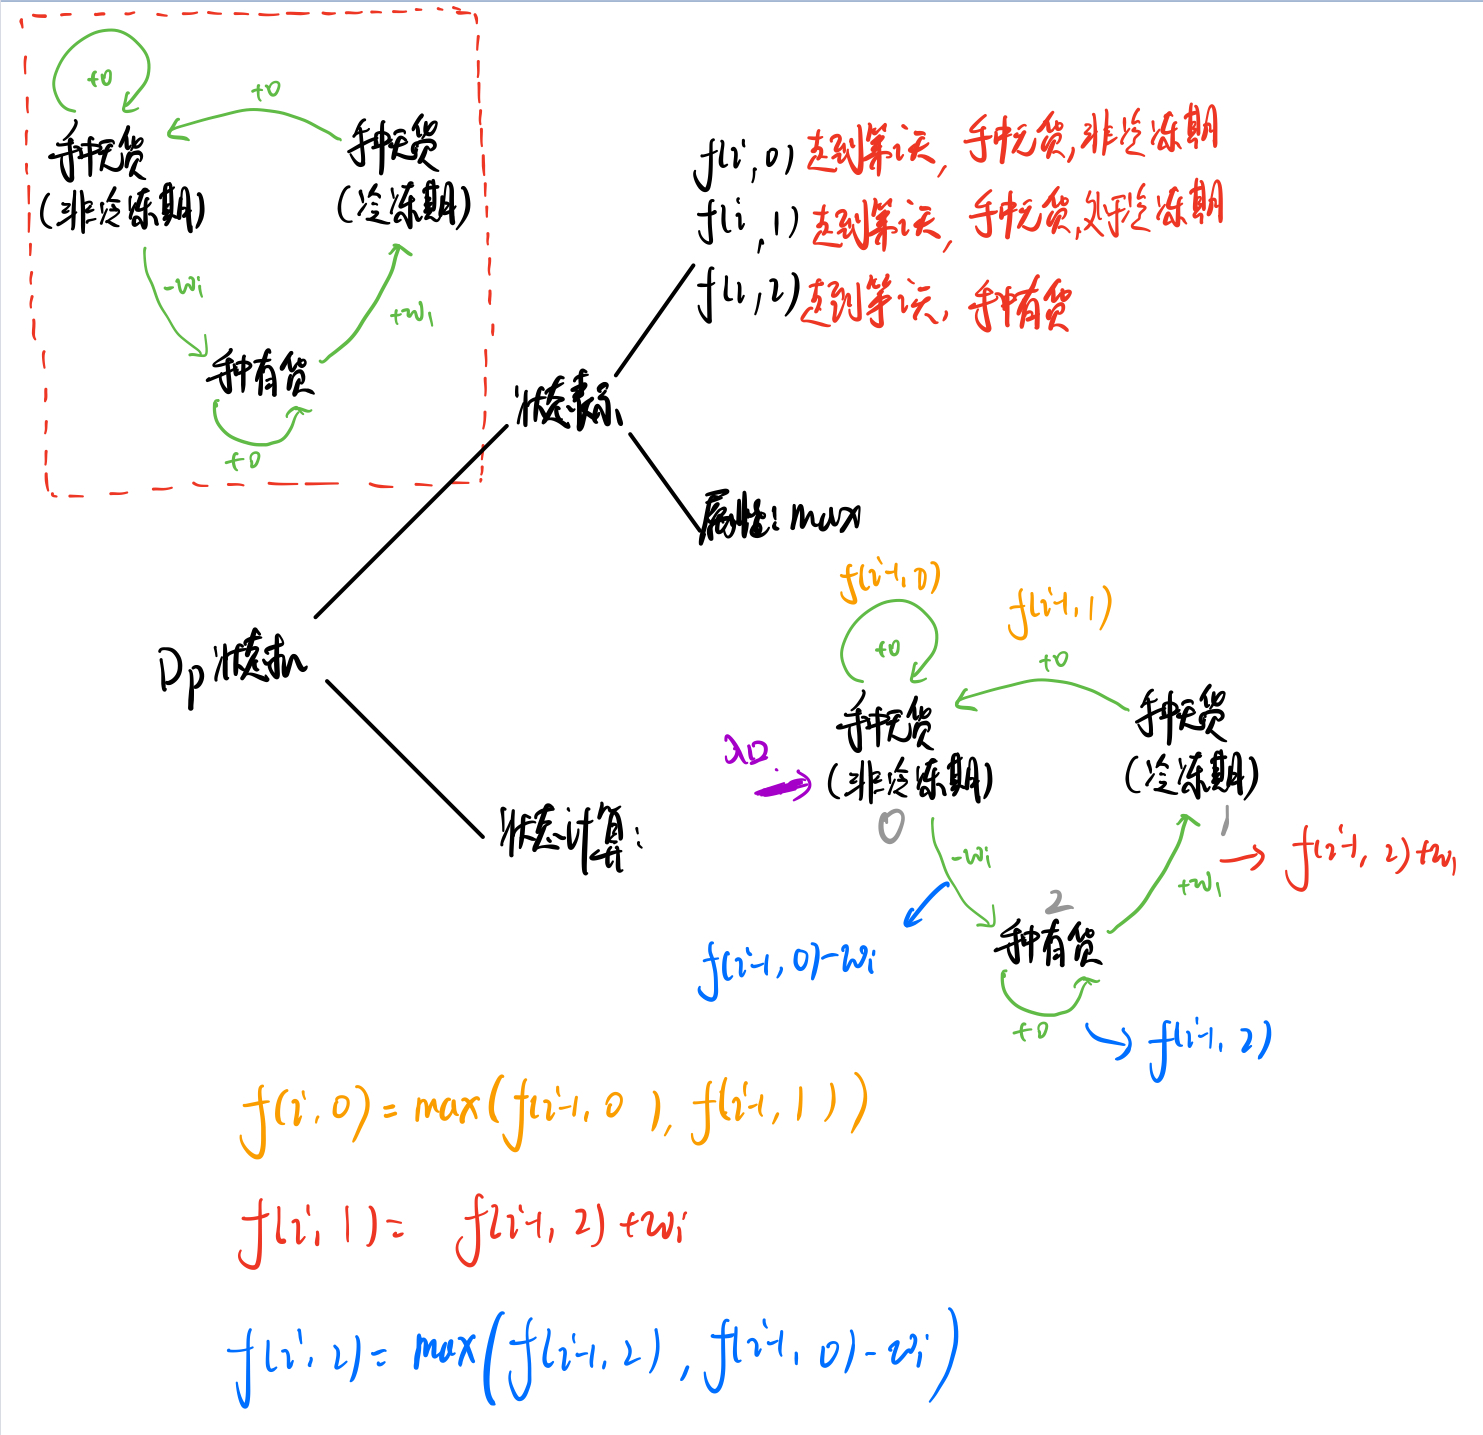 +0
+0
手中无货
(非冷冻期)
手中无货
(冷冻期)
-wi
+wi
手中有货
+0
f(i,0) 走到第i天, 手中无货, 非冷冻期
f(i,1) 走到第i天, 手中无货, 处于冷冻期
f(i,2) 走到第i天, 手中有货
状态表示
属性: max
Dp 状态机
状态计算:
f(i-1,0)
f(i-1,1)
+0
+0
手中无货
(非冷冻期)
0
手中无货
(冷冻期)
1
入口
-wi
+wi
f(i-1,2)+wi
2
手中有货
f(i-1,0)-wi
+0
f(i-1,2)
f(i,0)=max(f(i-1,0), f(i-1,1))
f(i,1)= f(i-1,2)+wi
f(i,2)=max(f(i-1,2), f(i-1,0)-wi)